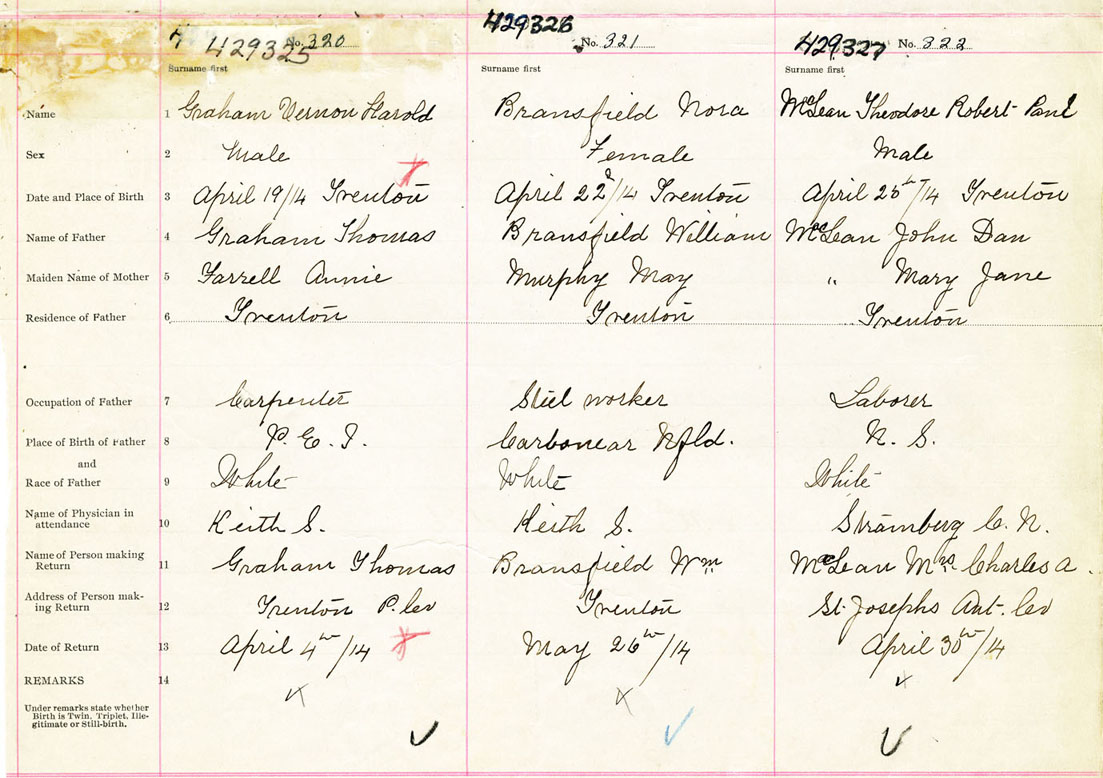 429325 No. 320 429326 No. 321 429327 No. 322
Surname first Surname first Surname first
Name 1 Graham Vernon Harold Bransfield Nora McLean Theodore Robert Paul
Sex 2 Male Female Male
Date and Place of Birth 3 April 19/14 Trenton April 22d/14 Trenton April 25th/14 Trenton
Name of Father 4 Graham Thomas Bransfield William McLean John Dan
Maiden Name of Mother 5 Farrell Annie Murphy May " Mary Jane
Residence of Father 6 Trenton Trenton Trenton
Occupation of Father 7 Carpenter Steel worker Laborer
Place of Birth of Father 8 P. E. I. Carbonear Nfld. N. S.
and
Race of Father 9 White White White
Name of Physician in
attendance 10 Keith S. Keith S. Stramberg C. N.
Name of Person making
Return 11 Graham Thomas Bransfield Wm McLean Mrs Charles A.
Address of Person mak-
ing Return 12 Trenton P. Co Trenton St. Josephs Ant. Co
Date of Return 13 April 4th/14 May 26th/14 April 30th/14
REMARKS 14
Under remarks state whether
Birth is Twin, Triplet, Ille-
gitimate or Still-birth.